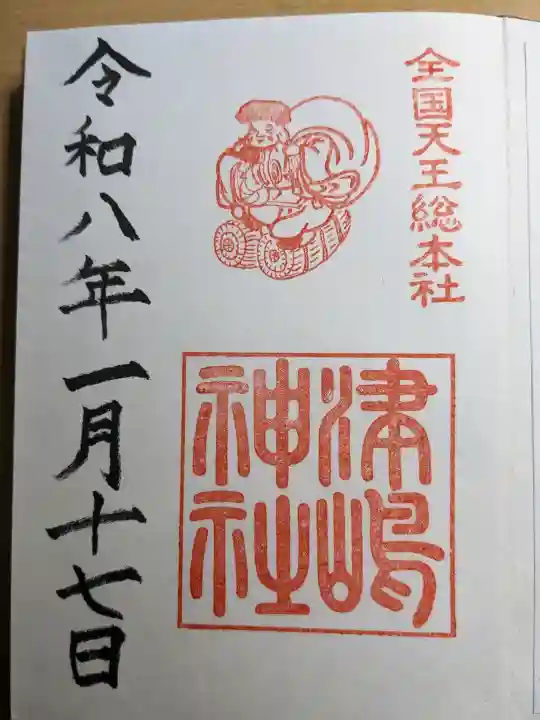 全国天王総本社
津嶋
神社
令和八年一月十七日